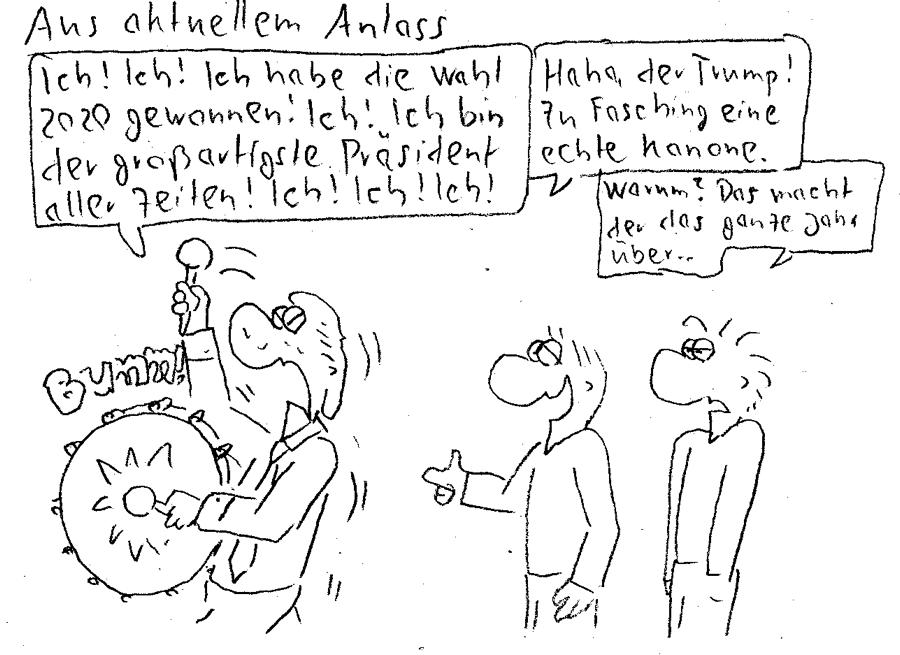 Aus aktuellem Anlass
Ich! Ich! Ich habe die Wahl
2020 gewonnen! Ich! Ich bin
der großartigste Präsident
aller Zeiten! Ich! Ich! Ich!
Haha, der Trump!
Zu Fasching eine
echte Kanone.
Warum? Das macht
der das ganze Jahr
über...
Bumm!